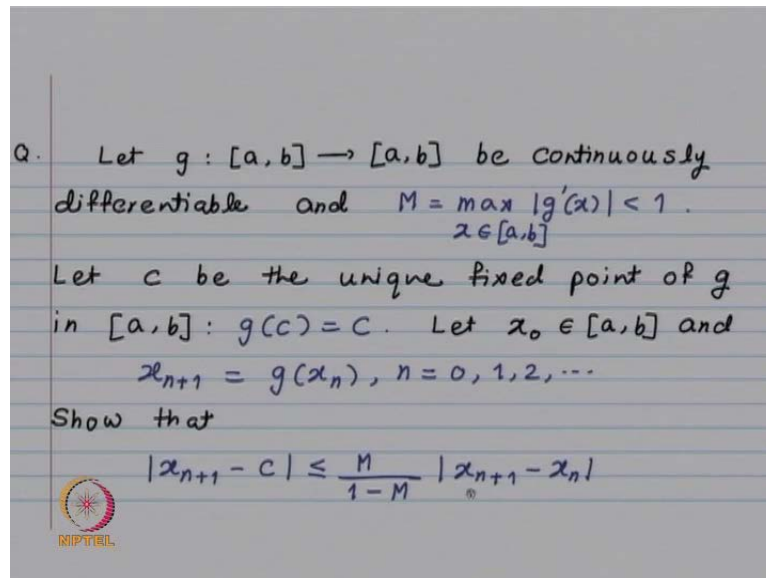 Q. Let g : [a, b] → [a, b] be continuously
differentiable and M = max |g'(x)| < 1.
x ∈ [a,b]
Let c be the unique fixed point of g
in [a, b] : g(c) = c. Let x₀ ∈ [a, b] and
xₙ₊₁ = g(xₙ), n = 0, 1, 2, ...
Show that
|xₙ₊₁ - c| ≤ M/(1 - M) |xₙ₊₁ - xₙ|
NPTEL